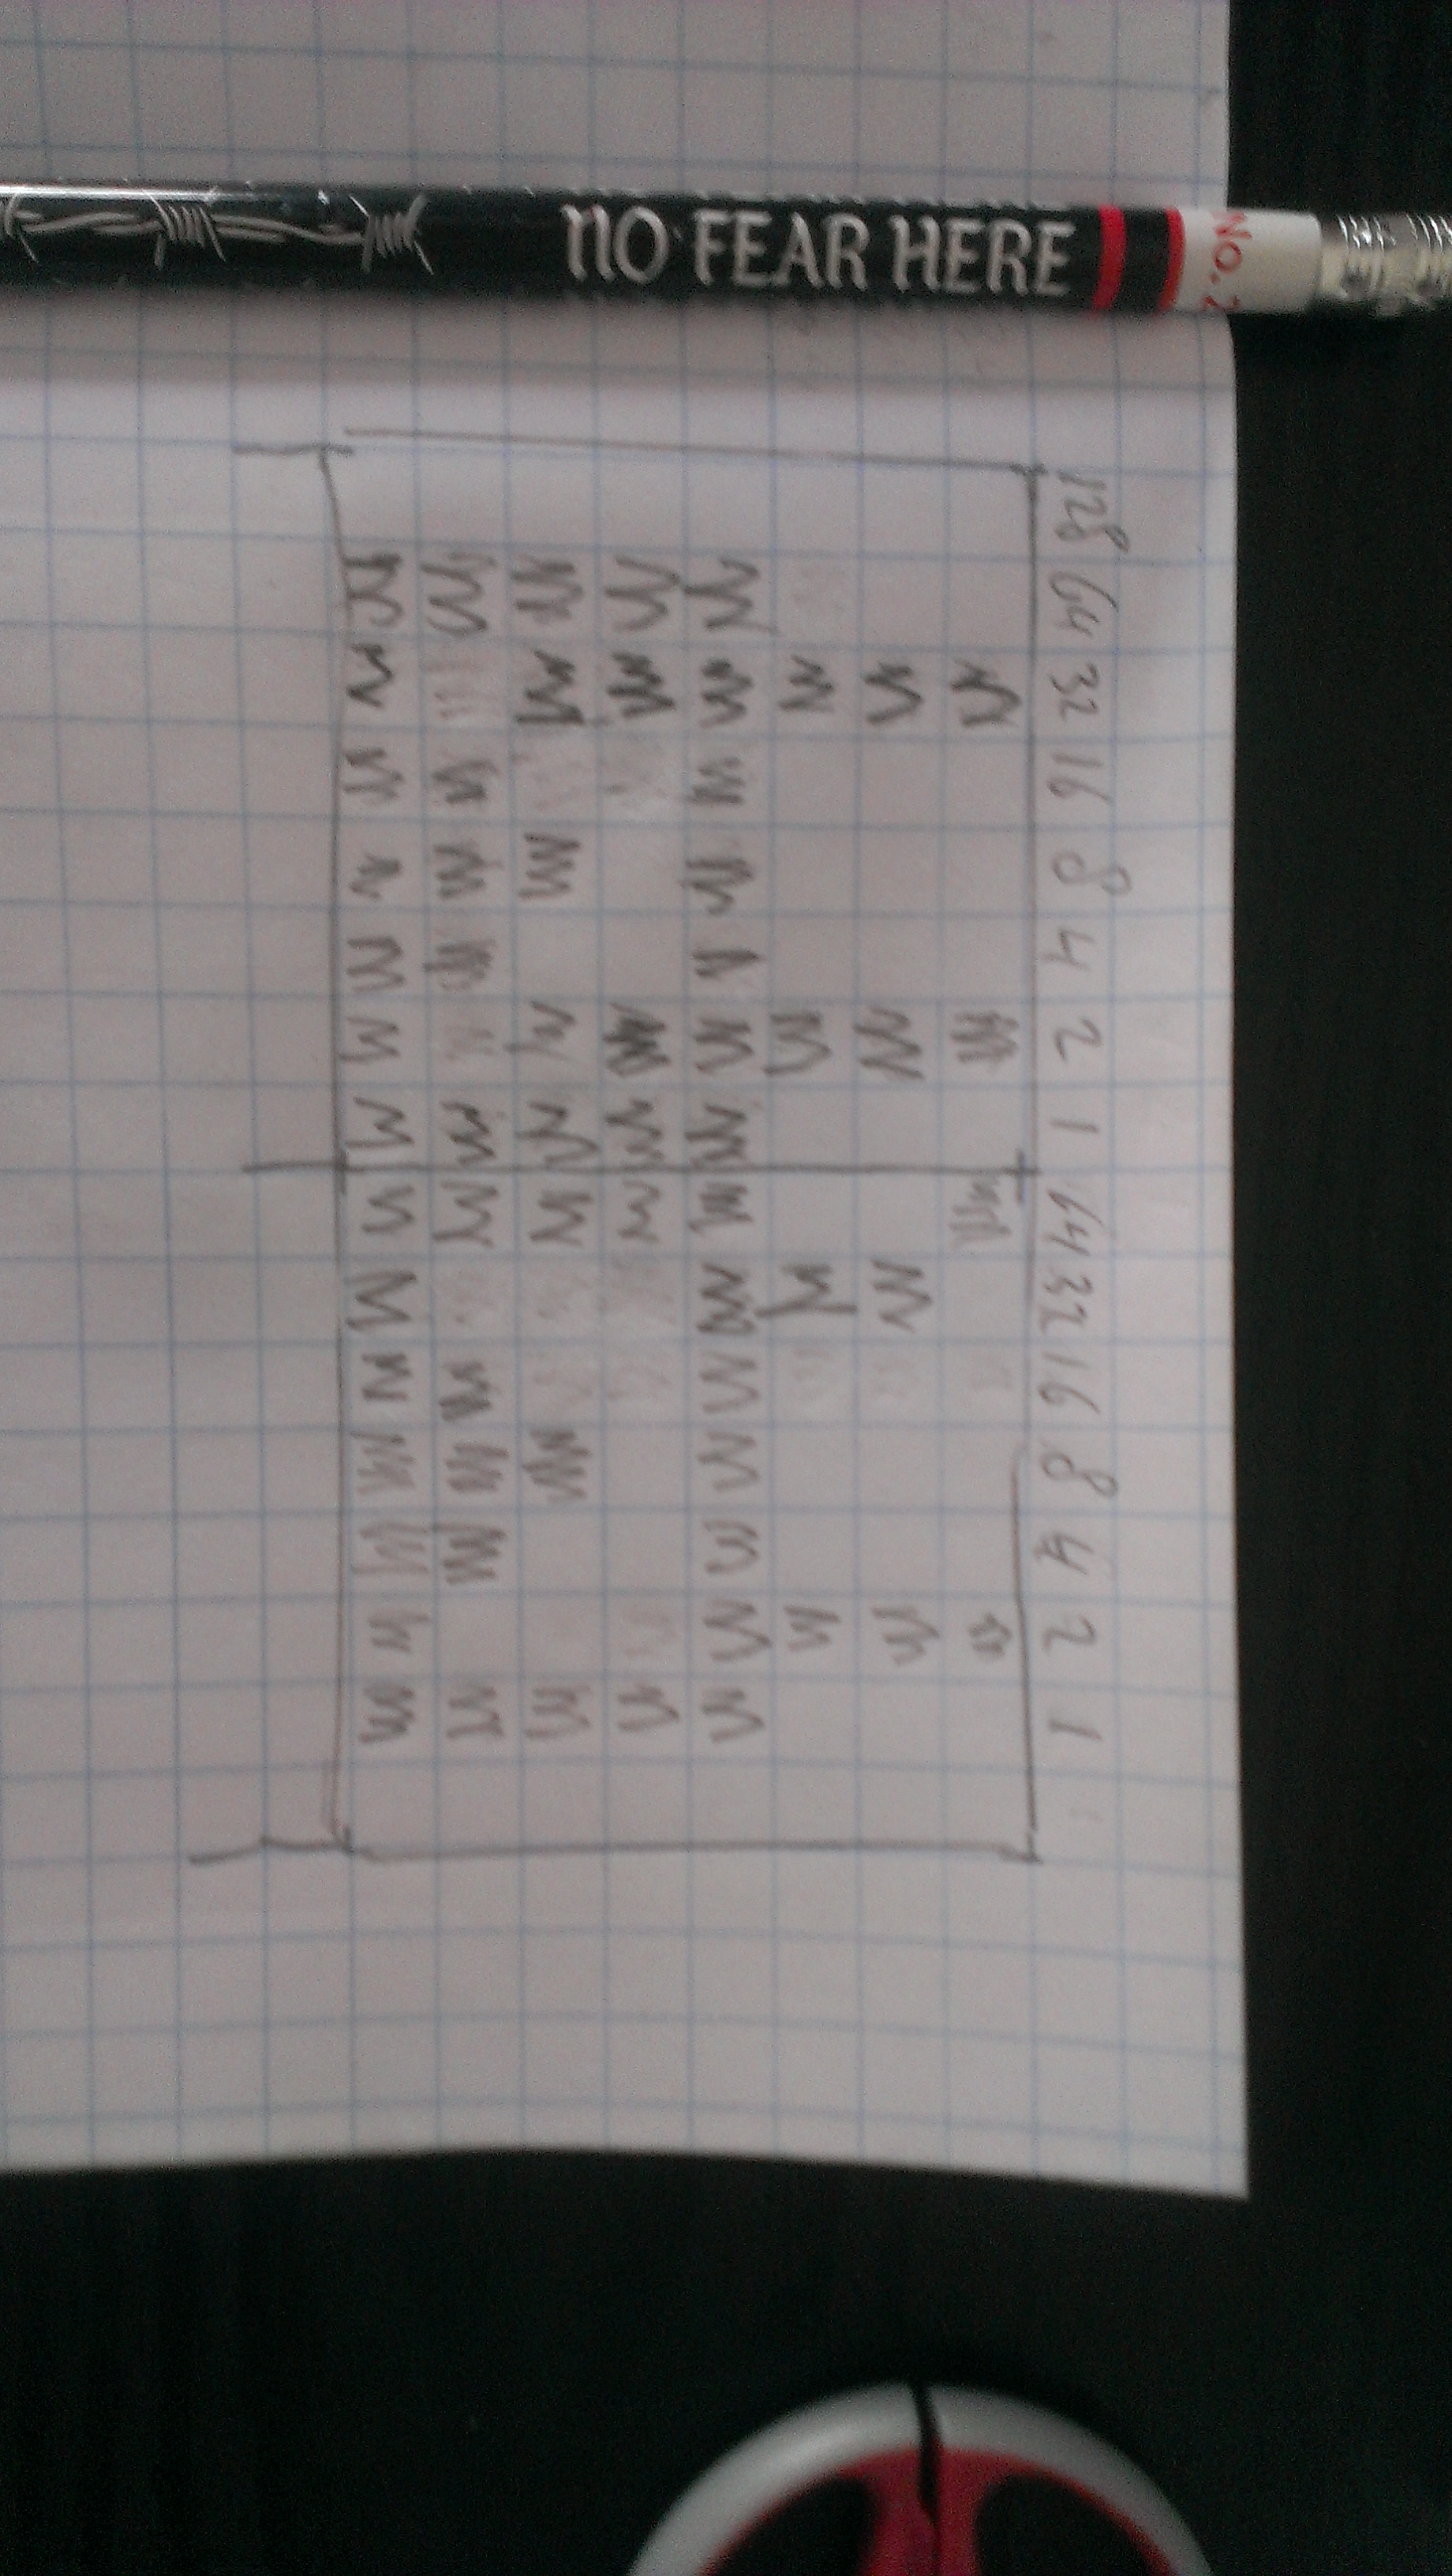 NO FEAR HERE
No. 2
128 64 32 16 8 4 2 1 64 32 16 8 4 2 1